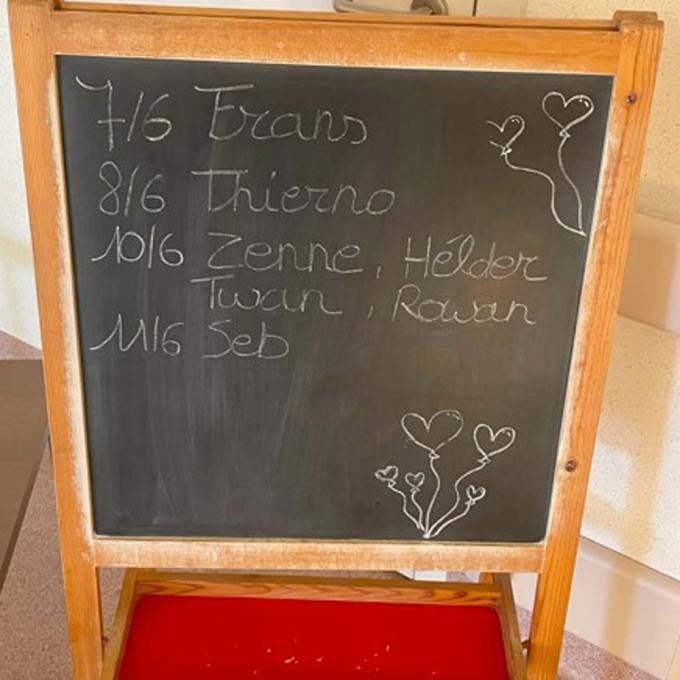 7/6 Frans
8/6 Thierno
10/6 Zenne, Hélder
Twan, Rowan
11/6 Seb